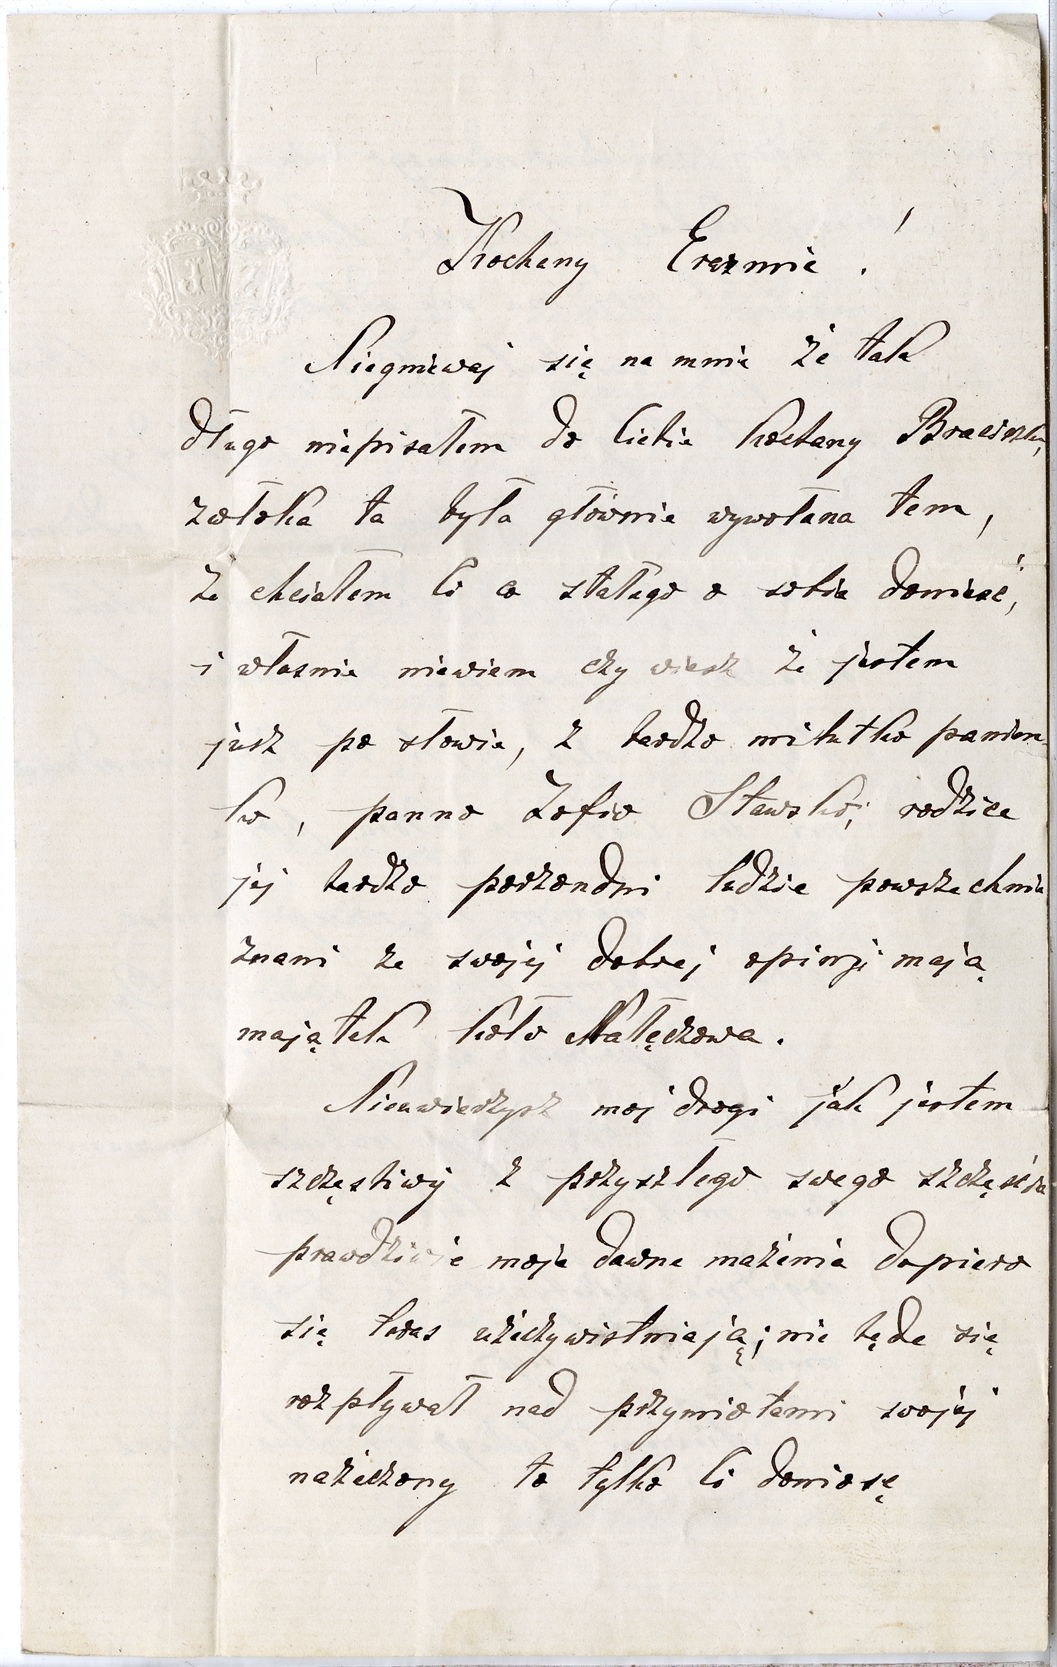 Kochany Erazmie !
Niegniewaj się na mnie że tak
długo niepisałem do Ciebie kochany Braciszku,
zwłoka ta była głównie wywołana tem,
że chciałem Ci co stałego o sobie donieść,
i własnie niewiem czy wiesz że jestem
jusz po słowie, z bardzo milutko panien
ko, panno Zofio Stawsko; rodzice
jej bardzo pożondni ludzie powszechnie
znani ze swojej dobrej opinji mają
majątek koło Nałęczowa.
Nieuwierzysz moj drogi jak jestem
szczęśliwy z pszyszłego swego szczęścia
prawdziwie moje dawne mażenia dopiero
się teras użeczywistniają; nie będe się
rozpływał nad pszymiotami swojej
nażeczony to tylko Ci doniosę